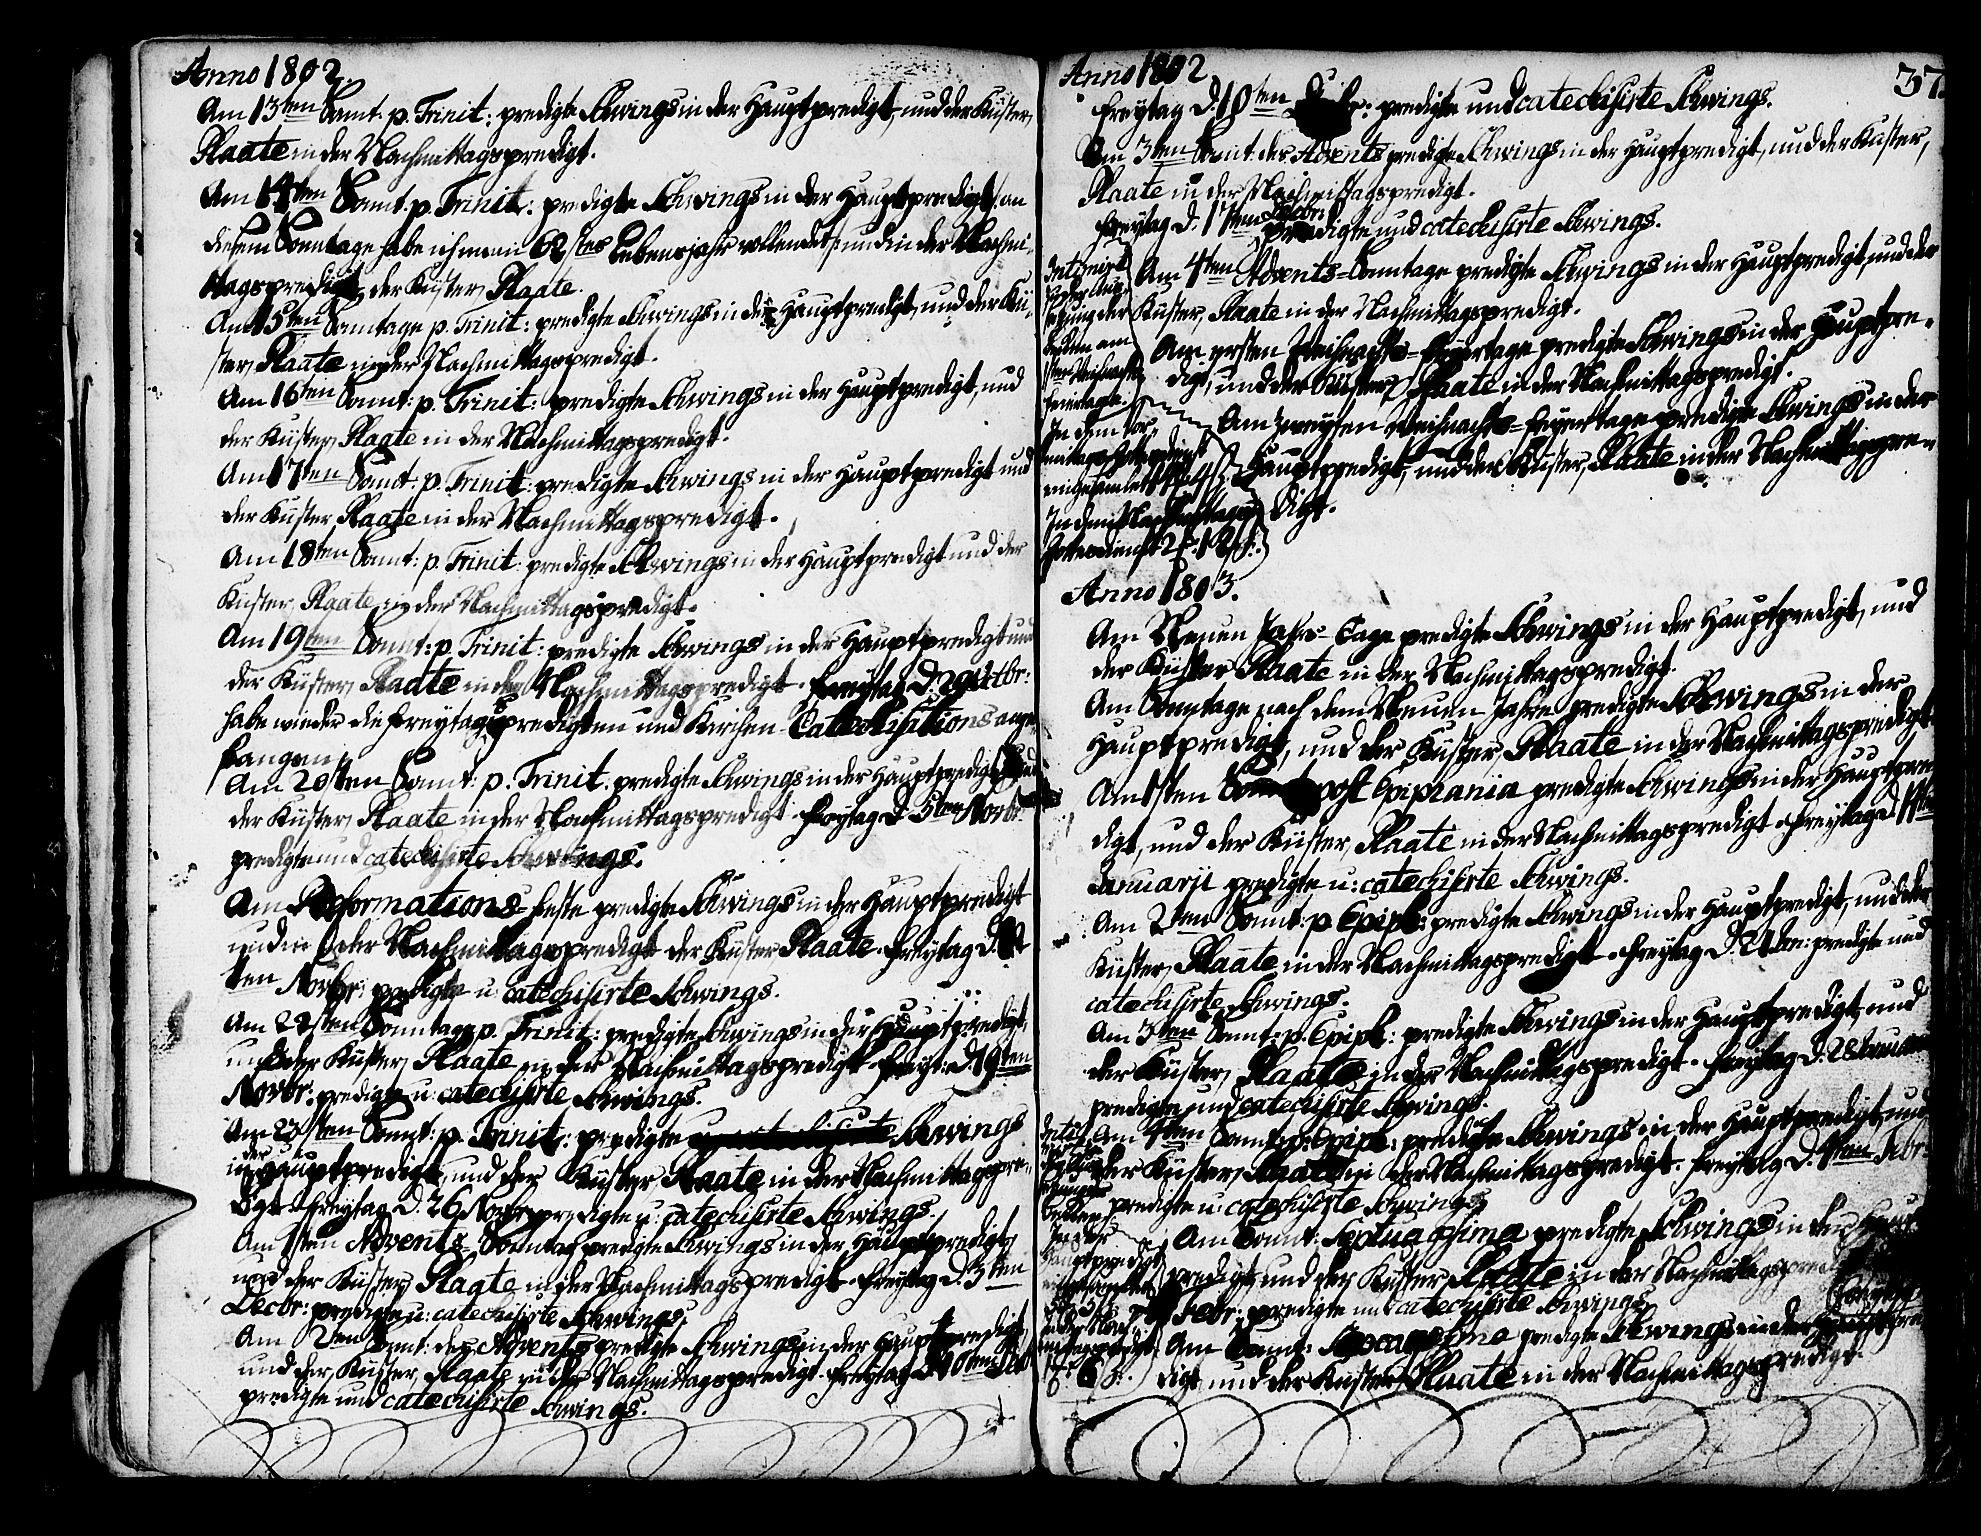 Anno 1802.
Am 13ten Sonnt: p. Trinit: predigte Schwings in der Hauptpredigt, und der Küster,
Plaate in der Nachmittagspredigt.
Am 14ten Sonnt. p. Trinit: predigte Schwings in der Hauptpredigt /: an
diesem Sonntage habe ich mein 62stes Lebensjahr vollendet :/ und in der Nachmi-
ttagspredigt, der Küster, Plaate.
Am 15ten Sonntage p. Trinit: predigte Schwings in der Hauptpredigt, und der Kü-
ster, Plaate in der Nachmittagspredigt.
Am 16ten Sonnt: p. Trinit: predigte Schwings in der Hauptpredigt, und
der Küster, Plaate in der Nachmittagspredigt.
Am 17ten Sonnt: p. Trinit: predigte Schwings in der Hauptpredigt und
der Küster, Plaate in der Nachmittagspredigt.
Am 18ten Sonnt: p. Trinit: predigte Schwings in der Hauptpredigt und der
Küster, Plaate in der Nachmittagspredigt.
Am 19ten Sonnt: p. Trinit: predigte Schwings in der Hauptpredigt und
der Küster, Plaate in der Nachmittagspredigt. Freytag d. 29 Octbr:
habe wieder die Freytagspredigten und Kirchen-Catechisitions ange-
fangen.
Am 20sten Sonnt: p. Trinit. predigte Schwings in der Hauptpredigt, und
der Küster, Plaate in der Nachmittagspredigt. Freytag d. 5ten Novbr:
predigte und catechisirte Schwings.
Am Reformations-Feste predigte Schwings in der Hauptpredigt
und in der Nachmittagspredigt der Küster Plaate. Freytag d. 12
ten Novbr: predigte u: catechisirte Schwings.
Am 22sten Sonntage p. Trinit: predigte Schwings in der Hauptpredigt,
und der Küster, Plaate in der Nachmittagspredigt. Freyt: d. 19ten
Novbr: predigte u: catechisirte Schwings.
Am 23sten Sonnt: p. Trinit: predigte Schwings
in der Hauptpredigt, und der Küster Plaate in der Nachmittagspre-
digt. Freytag d. 26 Novbr: predigte u: catechisirte Schwings.
Am 1sten Advents Sonntag predigte Schwings in der Hauptpredigt,
und der Küster, Plaate in der Nachmittagspredigt. Freytag d. 3ten
Decbr: predigte u: catechisirte Schwings.
Am 2ten Sonnt: des Advents predigte Schwings in der Hauptpredigt,
und der Küster, Plaate in der Nachmittagspredigt. Freytag d. 10ten Decbr
predigte und catechisirte Schwings.
Anno 1802
37.
Freytag d. 10ten predigte und catechisirte Schwings.
Am 3ten Sonnt: des Advents predigte Schwings in der Hauptpredigt, und der Küster,
Plaate in der Nachmittagspredigt.
Freytag d. 17ten Decbr: predigte und catechisirte Schwings.
Am 4ten Advents-Sonntage predigte Schwings in der Hauptpredigt, und der
Küster, Plaate in der Nachmittagspredigt.
Am ersten Weihnachts-Feyertage predigte Schwings in der Hauptpre-
digt, und der Küster, Plaate in der Nachmittagspredigt.
Am zweyten Weihnachts-Feyertage predigte Schwings in der
Hauptpredigt, und der Küster, Plaate in der Nachmittagspre-
digt.
Anno 1803.
Am Neuen Jahrs-Tage predigte Schwings in der Hauptpredigt, und
der Küster Plaate in der Nachmittagspredigt.
Am Sonntage nach dem Neuen Jahre predigte Schwings in der
Hauptpredigt, und der Küster, Plaate in der Nachmittagspredigt.
Am 1sten post Epiphania predigte Schwings in der Hauptpre-
digt, und der Küster, Plaate in der Nachmittagspredigt. Freytag d.
Januarii predigte u: catechisirte Schwings.
Am 2ten Sonnt: p. Epiph: predigte Schwings in der Hauptpredigt, und der
Küster, Plaate in der Nachmittagspredigt. Freytag d. 21 predigte und
catechisirte Schwings.
Am 3ten Sonnt: p. Epiph: predigte Schwings in der Hauptpredigt, und
der Küster, Plaate in der Nachmittagspredigt. Freytag d. 28 Januarii
predigte und catechisirte Schwings.
Am 4ten Sonnt: p. Epiph: predigte Schwings in der Hauptpredigt, und
der Küster, Plaate in der Nachmittagspredigt. Freytag d. 4ten Febr:
predigte u: catechisirte Schwings.
Am Sonnt: Septuagesima predigte Schwings in der Haupt-
predigt, und der Küster Plaate in der Nachmittagspredigt.
Febr: predigte und catechisirte Schwings.
Am Sonnt: Sexagesima predigte Schwings in der Hauptpre-
digt, und der Küster, Plaate in der Nachmittagspredigt.